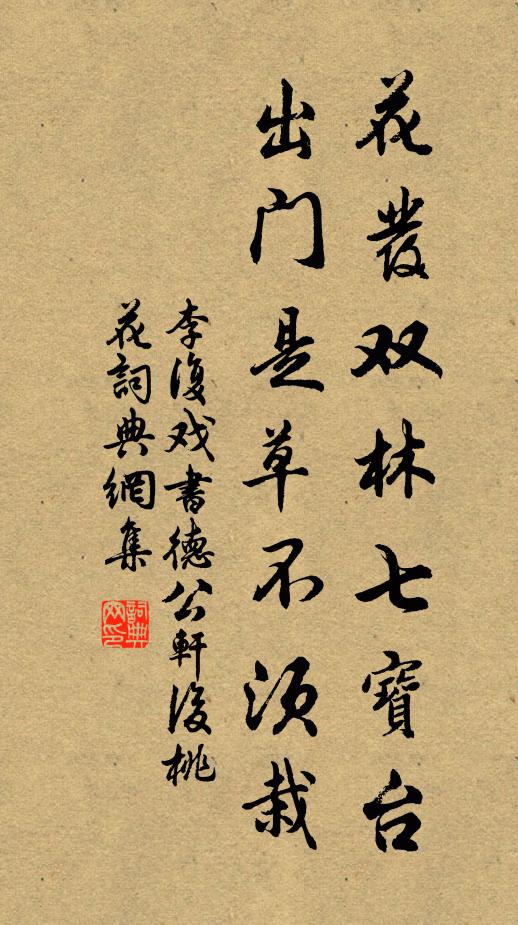 花發双林七寶台
出門是草不須栽
李復戏書德公軒後桃
花詞典網集
詞典
网印